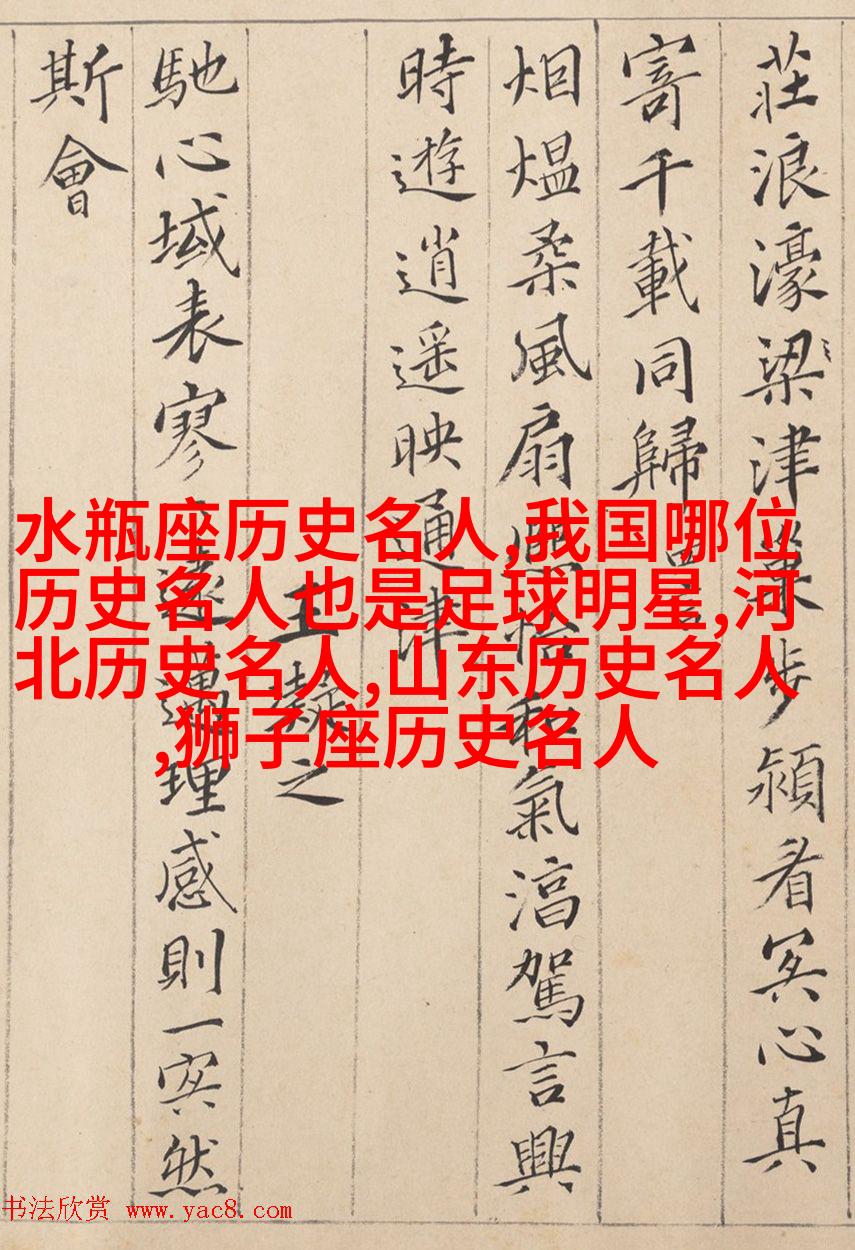 莊浪濠梁津巢步潁看冥心真
寄千載同歸
烟熅柔風扇熙怡和氣湻駕言興
時遊逍遥映通津
王凝之
馳心域表寥遠邁理感則一冥然
斯會
水瓶座历史名人,我国哪位
历史名人也是足球明星,河
北历史名人,山东历史名人
,狮子座历史名人
书法欣赏 www.yac8.com